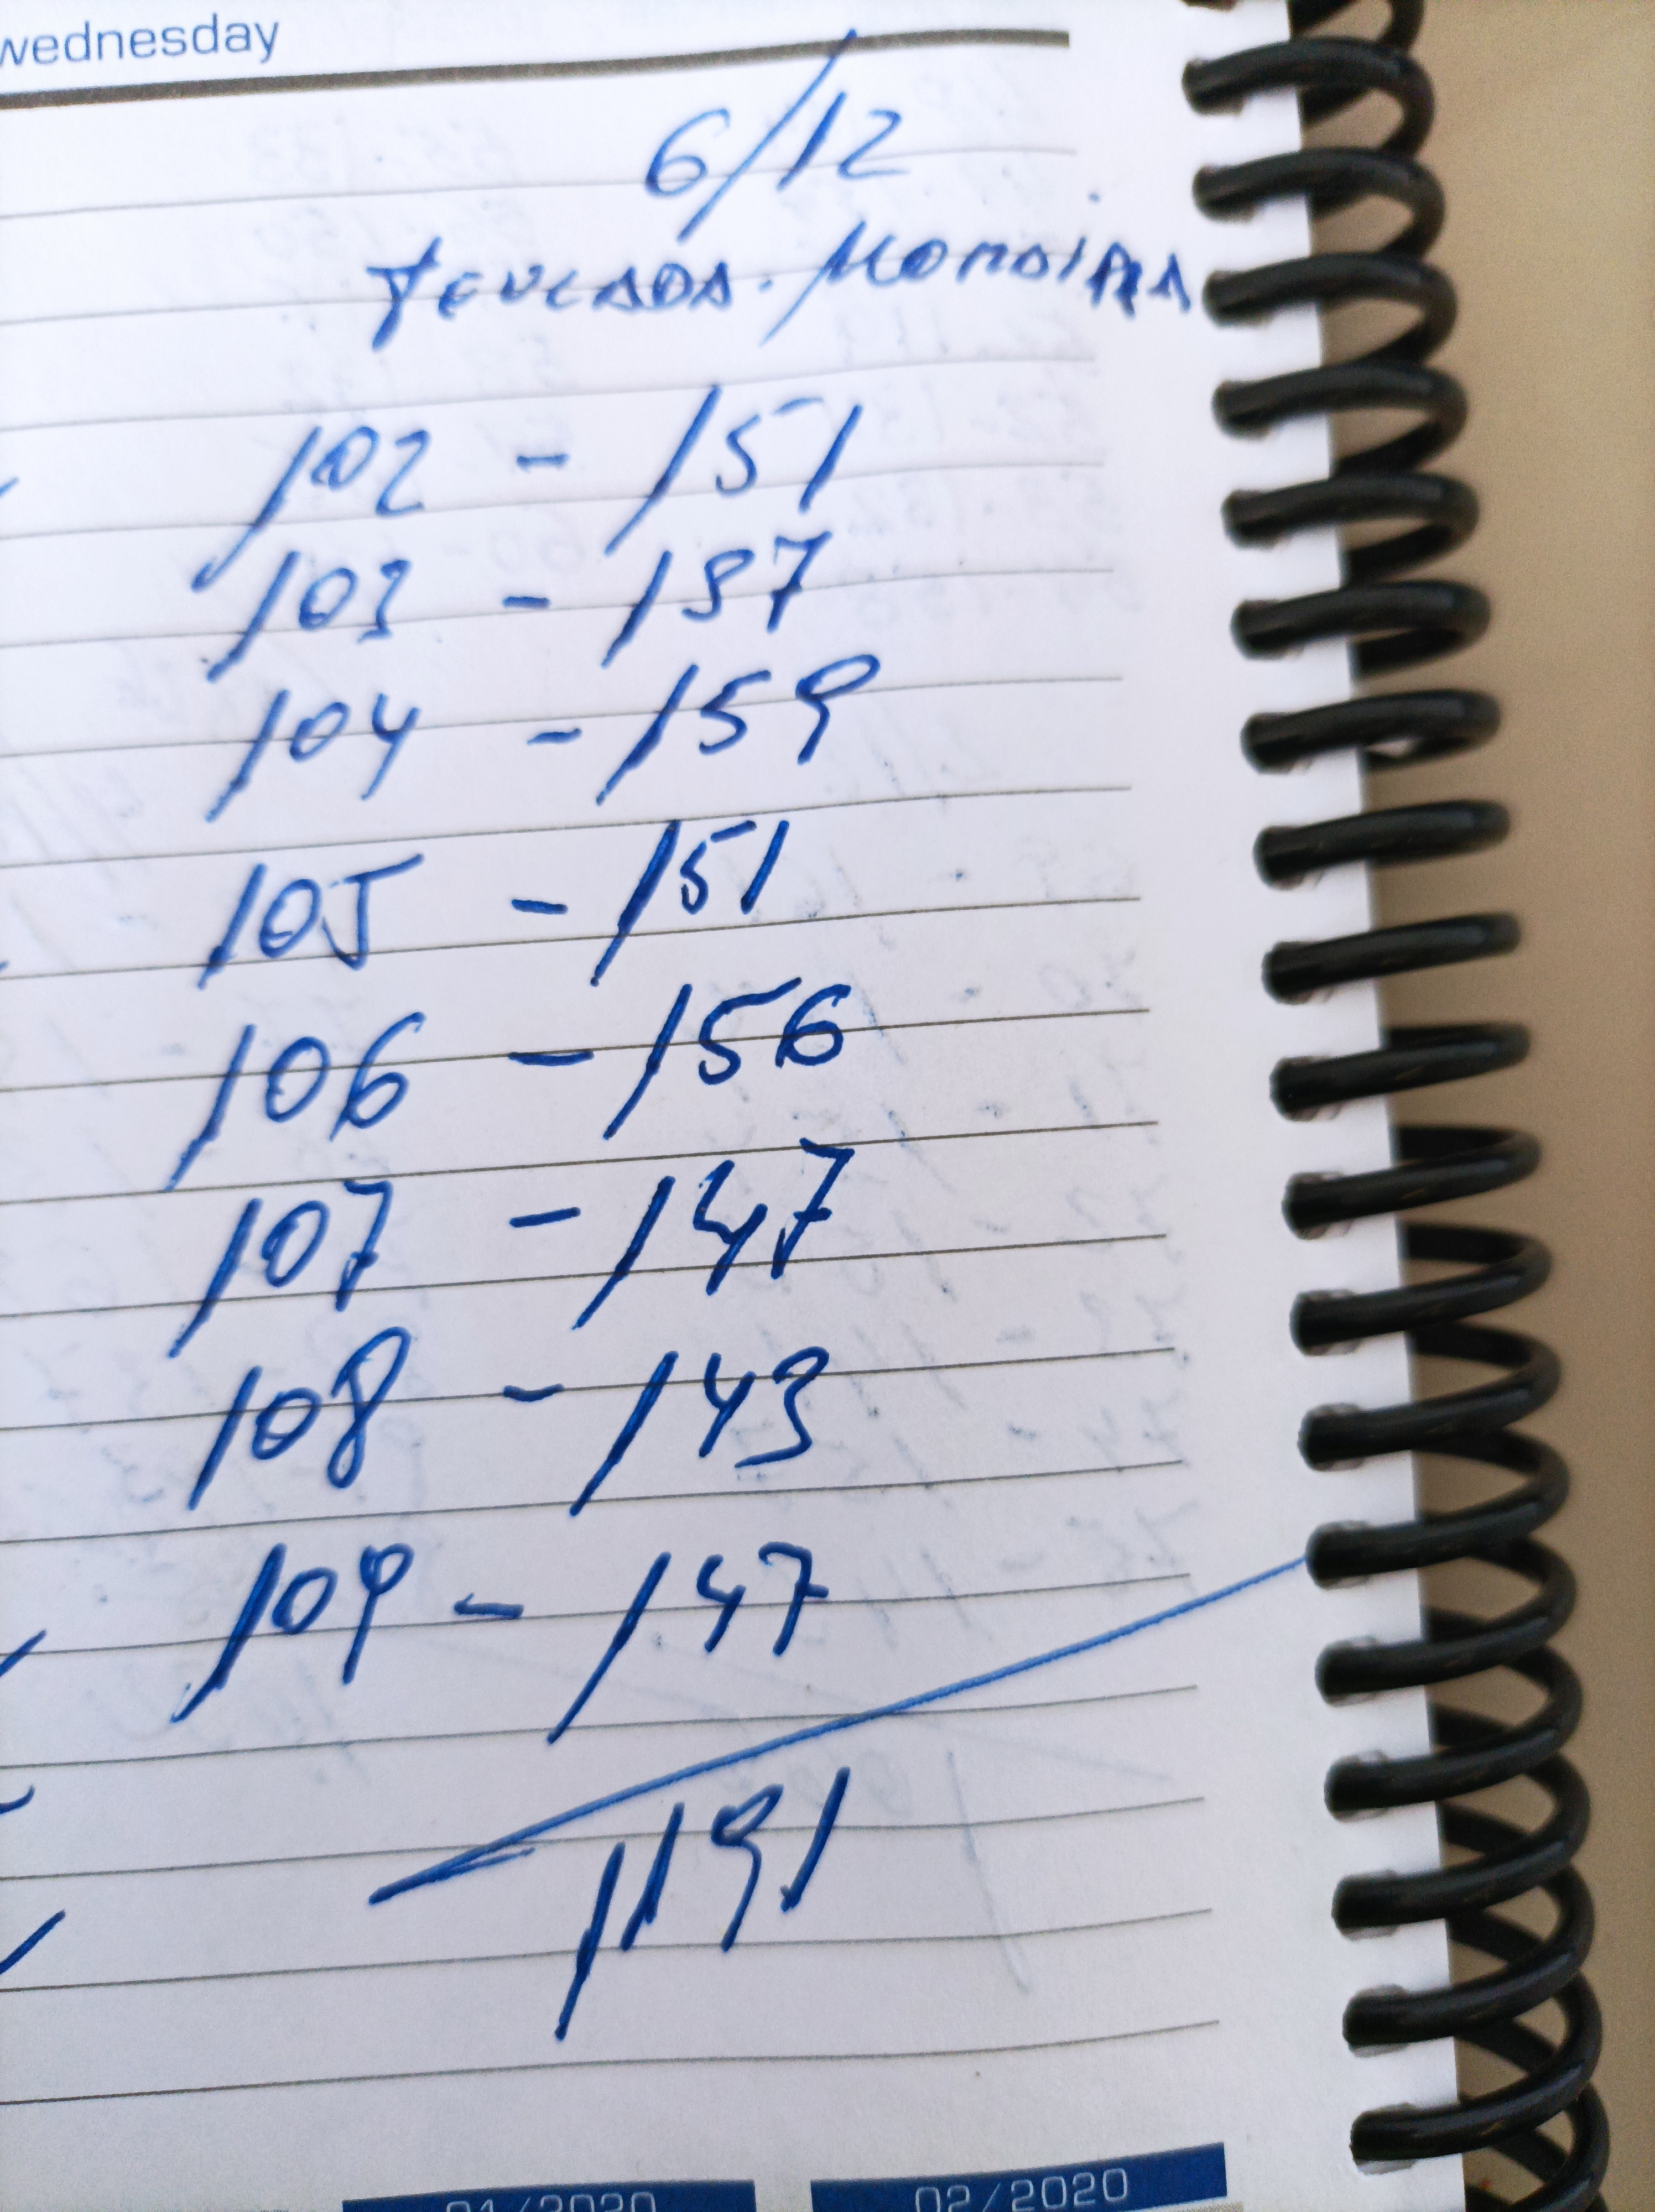 wednesday
6/12
TEULADA. MORAIRA
102 - 151
103 - 137
104 - 159
105 - 151
106 - 156
107 - 147
108 - 143
109 - 147
1191
01/2020 02/2020